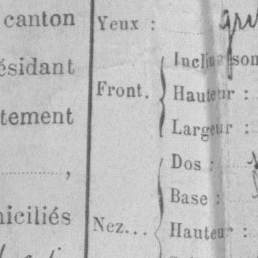 canton
ésidant
tement
,
niciliés
Yeux :
Front.
Inclinaison
Hauteur :
Largeur :
Nez...
Dos :
Base :
Hauteur :